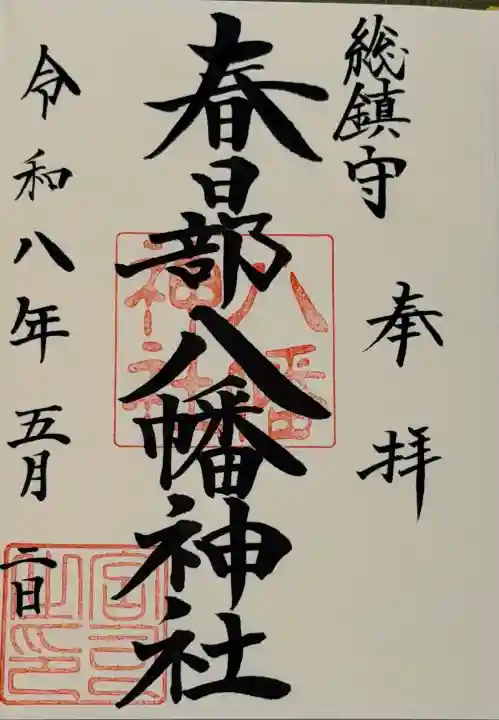 総鎮守
奉拝
春日部八幡神社
八幡
神社
令和八年五月二日